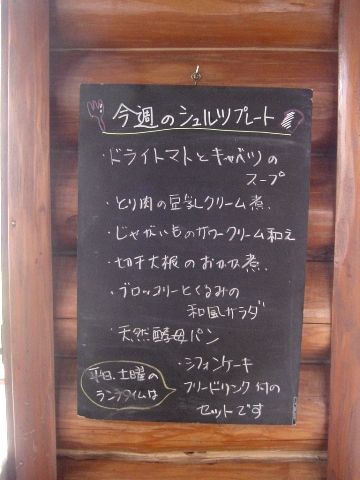 今週のシュルツプレート
・ドライトマトとキャベツの
スープ
・とり肉の豆乳クリーム煮
・じゃがいものサワークリーム和え
・切干大根のおかか煮
・ブロッコリーとくるみの
和風サラダ
・天然酵母パン
・シフォンケーキ
フリードリンク付の
セットです
平日、土曜の
ランチタイムは